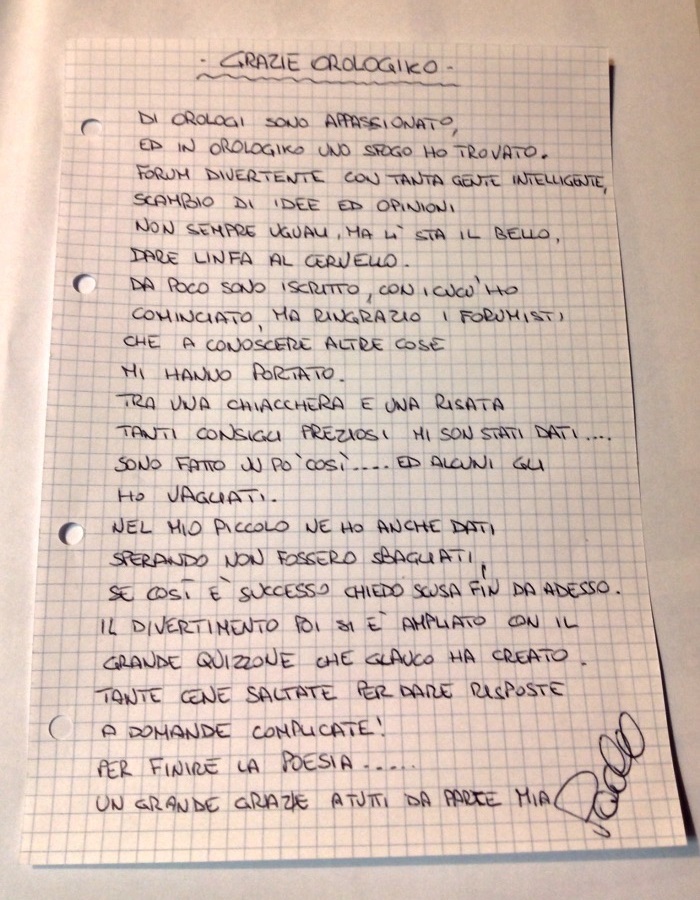 - GRAZIE OROLOGIKO -
DI OROLOGI SONO APPASSIONATO,
ED IN OROLOGIKO UNO SFOGO HO TROVATO.
FORUM DIVERTENTE CON TANTA GENTE INTELLIGENTE,
SCAMBIO DI IDEE ED OPINIONI
NON SEMPRE UGUALI, MA LI' STA IL BELLO,
DARE LINFA AL CERVELLO.
DA POCO SONO ISCRITTO, CON I CUCU' HO
COMINCIATO, MA RINGRAZIO I FORUMISTI
CHE A CONOSCERE ALTRE COSE
MI HANNO PORTATO.
TRA UNA CHIACCHERA E UNA RISATA
TANTI CONSIGLI PREZIOSI MI SON STATI DATI....
SONO FATTO UN PO' COSÌ.... ED ALCUNI GLI
HO VAGLIATI.
NEL MIO PICCOLO NE HO ANCHE DATI
SPERANDO NON FOSSERO SBAGLIATI,
SE COSÌ E' SUCCESSO CHIEDO SCUSA FIN DA ADESSO.
IL DIVERTIMENTO POI SI E' AMPLIATO CON IL
GRANDE QUIZZONE CHE GLAUCO HA CREATO.
TANTE CENE SALTATE PER DARE RISPOSTE
A DOMANDE COMPLICATE!
PER FINIRE LA POESIA.....
UN GRANDE GRAZIE A TUTTI DA PARTE MIA